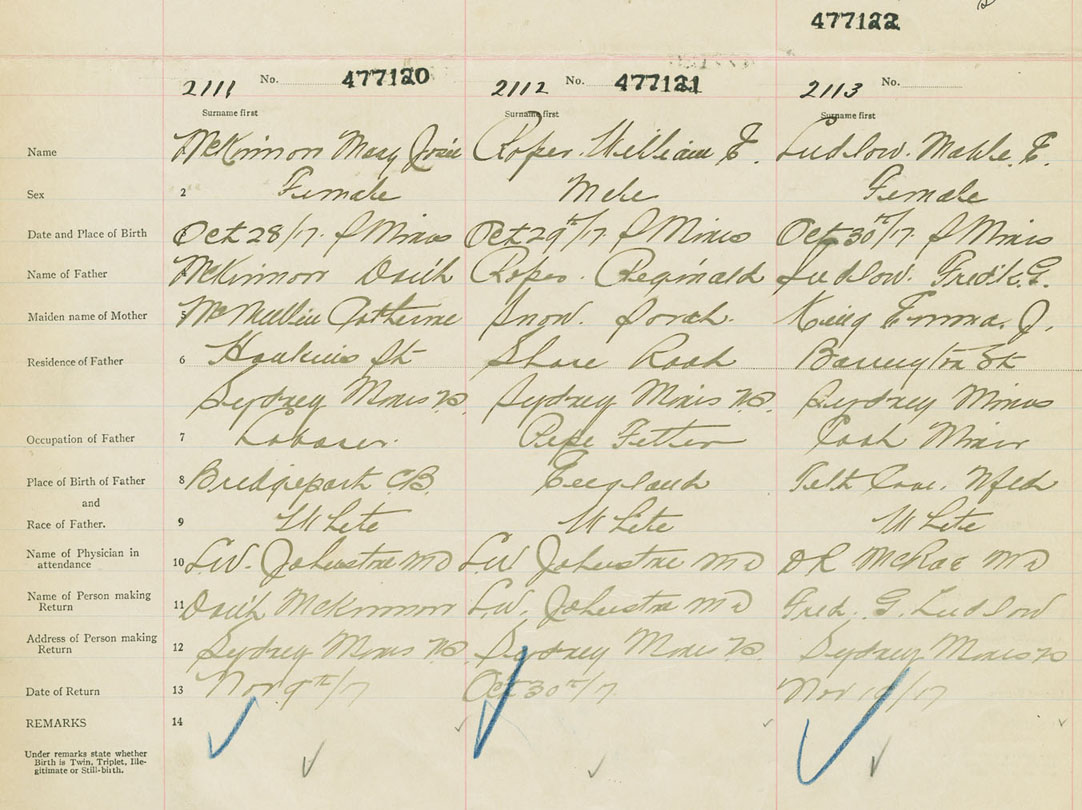 477122
2111 No. 477120 2112 No. 477121 2113 No.
Surname first Surname first Surname first
Name 1 McKinnon Mary Roper. William E. Ludlow. Mable. E.
Sex 2 Female Male Female
Date and Place of Birth 3 Oct 28/17. S Mines Oct 29th/17 S Mines Oct 30th/17. S Mines
Name of Father 4 McKinnon Roper. Reginald Ludlow. Fred'k. G.
Maiden name of Mother 5 McMullin Catherine Snow. Sarah. King Emma. J.
Residence of Father 6 Hawkins St Shore Road Barrington St
Sydney Mines NS. Sydney Mines NS. Sydney Mines
Occupation of Father 7 Laborer. Pipe Fitter Coal Miner
Place of Birth of Father 8 Bridgeport CB. England Tilt Cove. Nfld
and
Race of Father. 9 White White White
Name of Physician in
attendance 10 L.W. Johnstone MD L.W. Johnstone MD D R McRae MD
Name of Person making
Return 11 McKinnon L.W. Johnstone MD Fred. G. Ludlow
Address of Person making
Return 12 Sydney Mines NS. Sydney Mines NS. Sydney Mines NS
Date of Return 13 Nov 9th/17 Oct 30th/17. Nov /17
REMARKS 14
Under remarks state whether
Birth is Twin, Triplet, Ille-
gitimate or Still-birth.